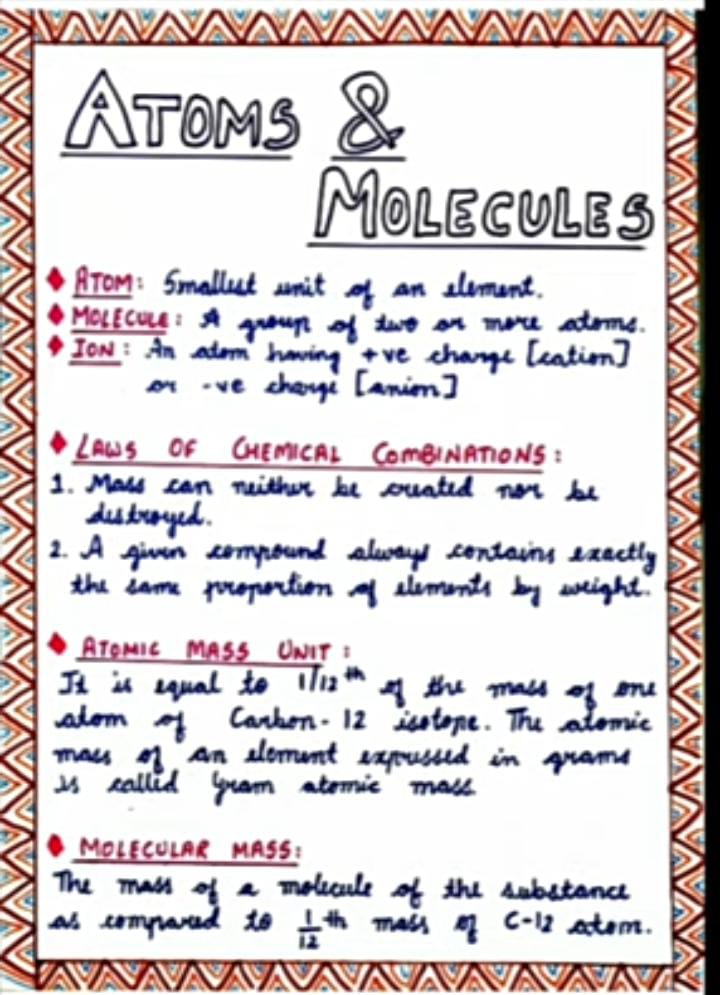 ATOMS &
MOLECULES
ATOM: Smallest unit of an element.
MOLECULE: A group of two or more atoms.
ION: An atom having +ve charge [cation]
or -ve charge [anion]
LAWS OF CHEMICAL COMBINATIONS:
1. Mass can neither be created nor be
destroyed.
2. A given compound always contains exactly
the same proportion of elements by weight.
ATOMIC MASS UNIT:
It is equal to 1/12th of the mass of one
atom of Carbon-12 isotope. The atomic
mass of an element expressed in grams
is called Gram atomic mass
MOLECULAR MASS:
The mass of a molecule of the substance
as compared to 1/12 th mass of C-12 atom.